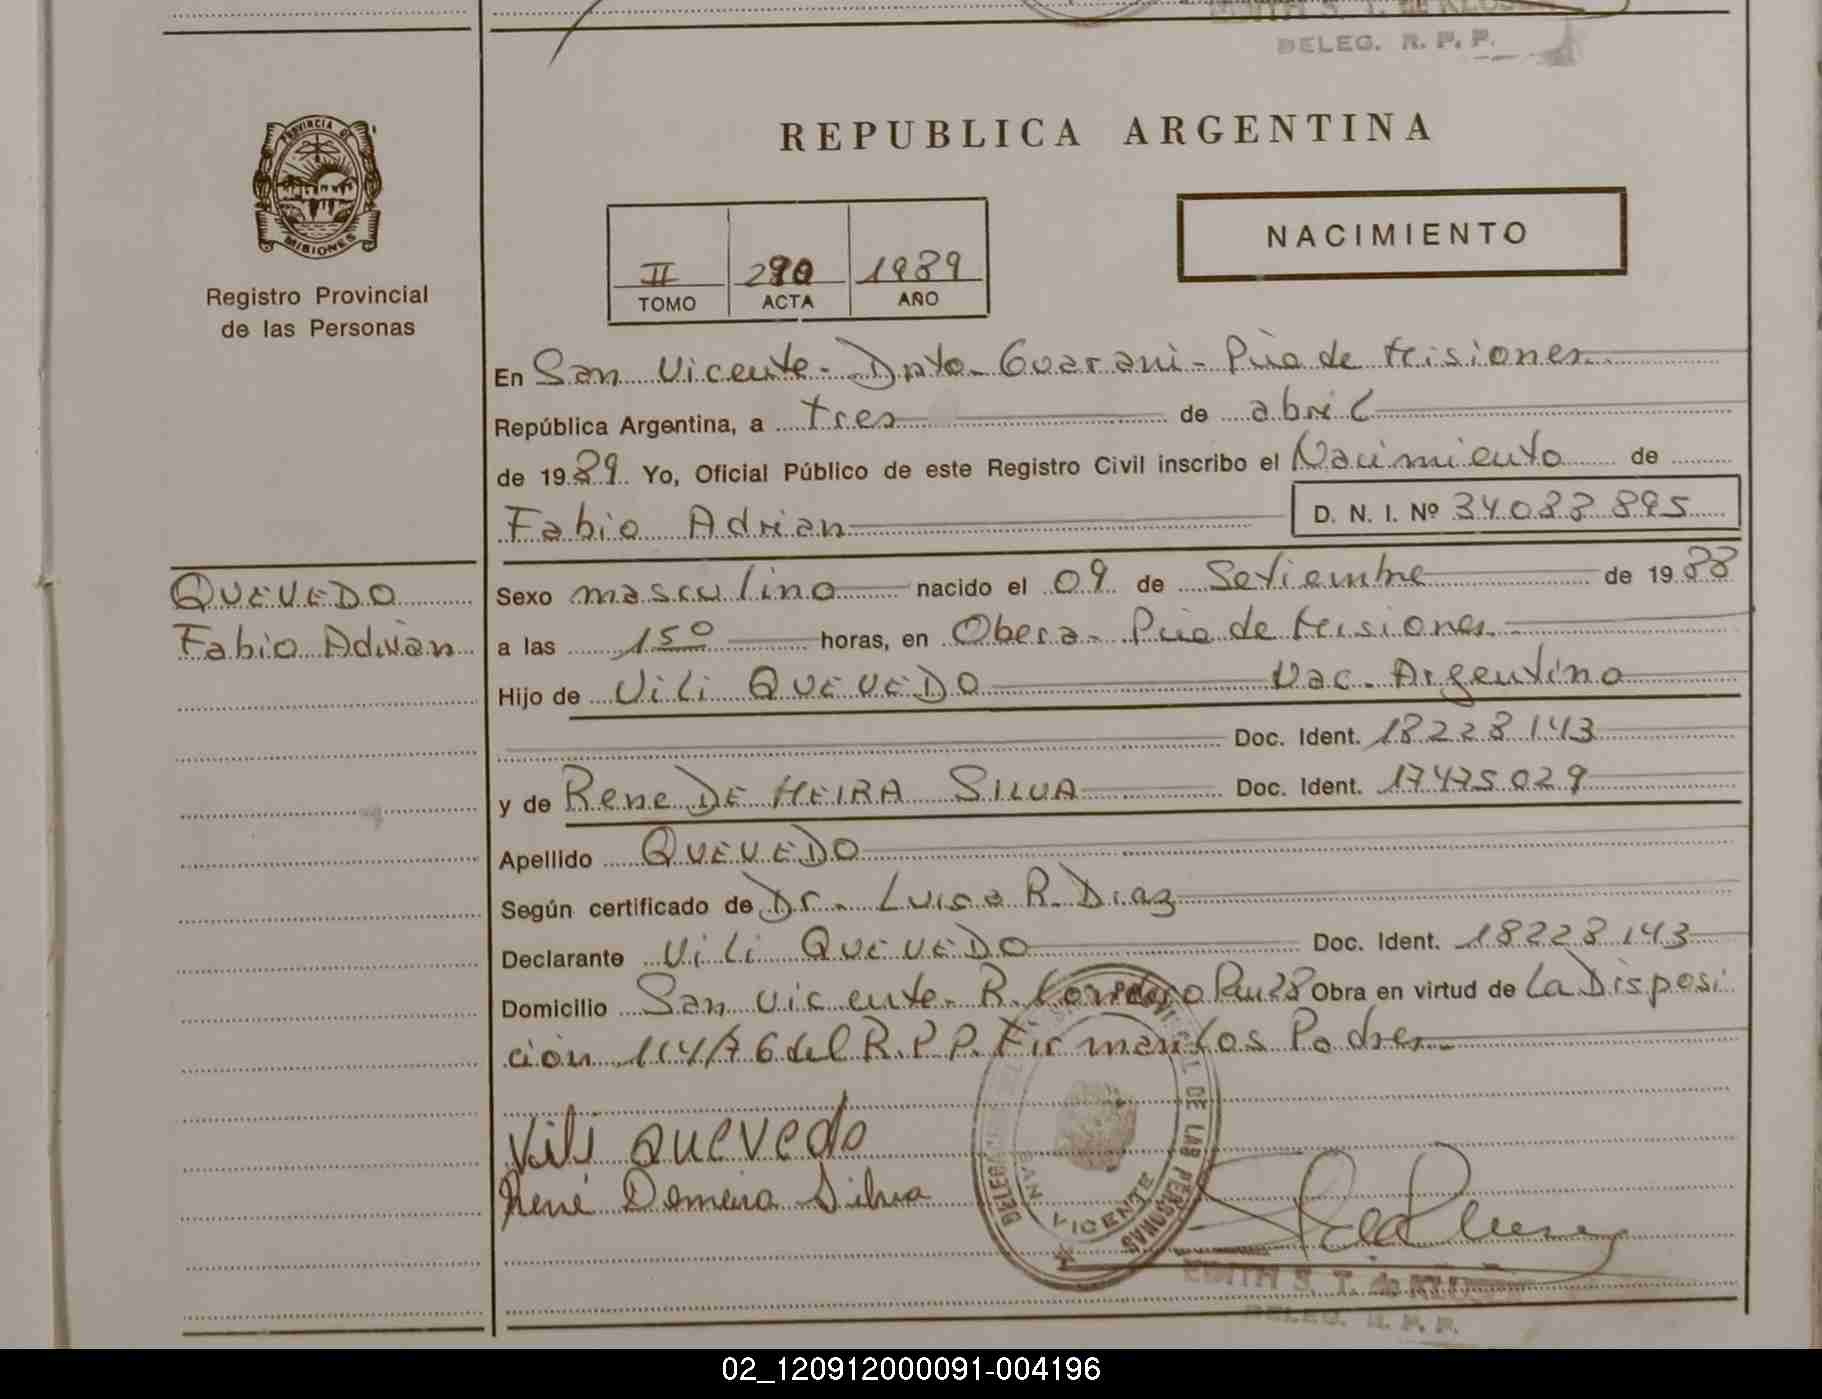 DELEG. R. P. P.
PROVINCIA DE
MISIONES
Registro Provincial
de las Personas
REPUBLICA ARGENTINA
NACIMIENTO
II 290 1989
TOMO ACTA AÑO
En San Vicente - Dpto. Guarani - Pcia de Misiones
República Argentina, a tres de abril
de 1989. Yo, Oficial Público de este Registro Civil inscribo el Nacimiento de
Fabio Adrian D. N. I. Nº 34.088.895
QUEVEDO
Fabio Adrian
Sexo masculino nacido el 09 de Setiembre de 1988
a las 15º horas, en Obera - Pcia de Misiones
Hijo de Vili QUEVEDO Nac. Argentino
Doc. Ident. 18.228.143
y de Rene DE MEIRA SILVA Doc. Ident. 17.475.029
Apellido QUEVEDO
Según certificado de Dr. Luis R. Diaz
Declarante Vili QUEVEDO Doc. Ident. 18.228.143
Domicilio San Vicente - R. Obra en virtud de La Disposi
ción 114/76 del R.P.P. Firman los Padres
Vili Quevedo
René Demeira Silva
DE LAS PERSONAS
SAN VICENTE
EDITH S. T. de
DELEG. R. P. P.
02_120912000091-004196